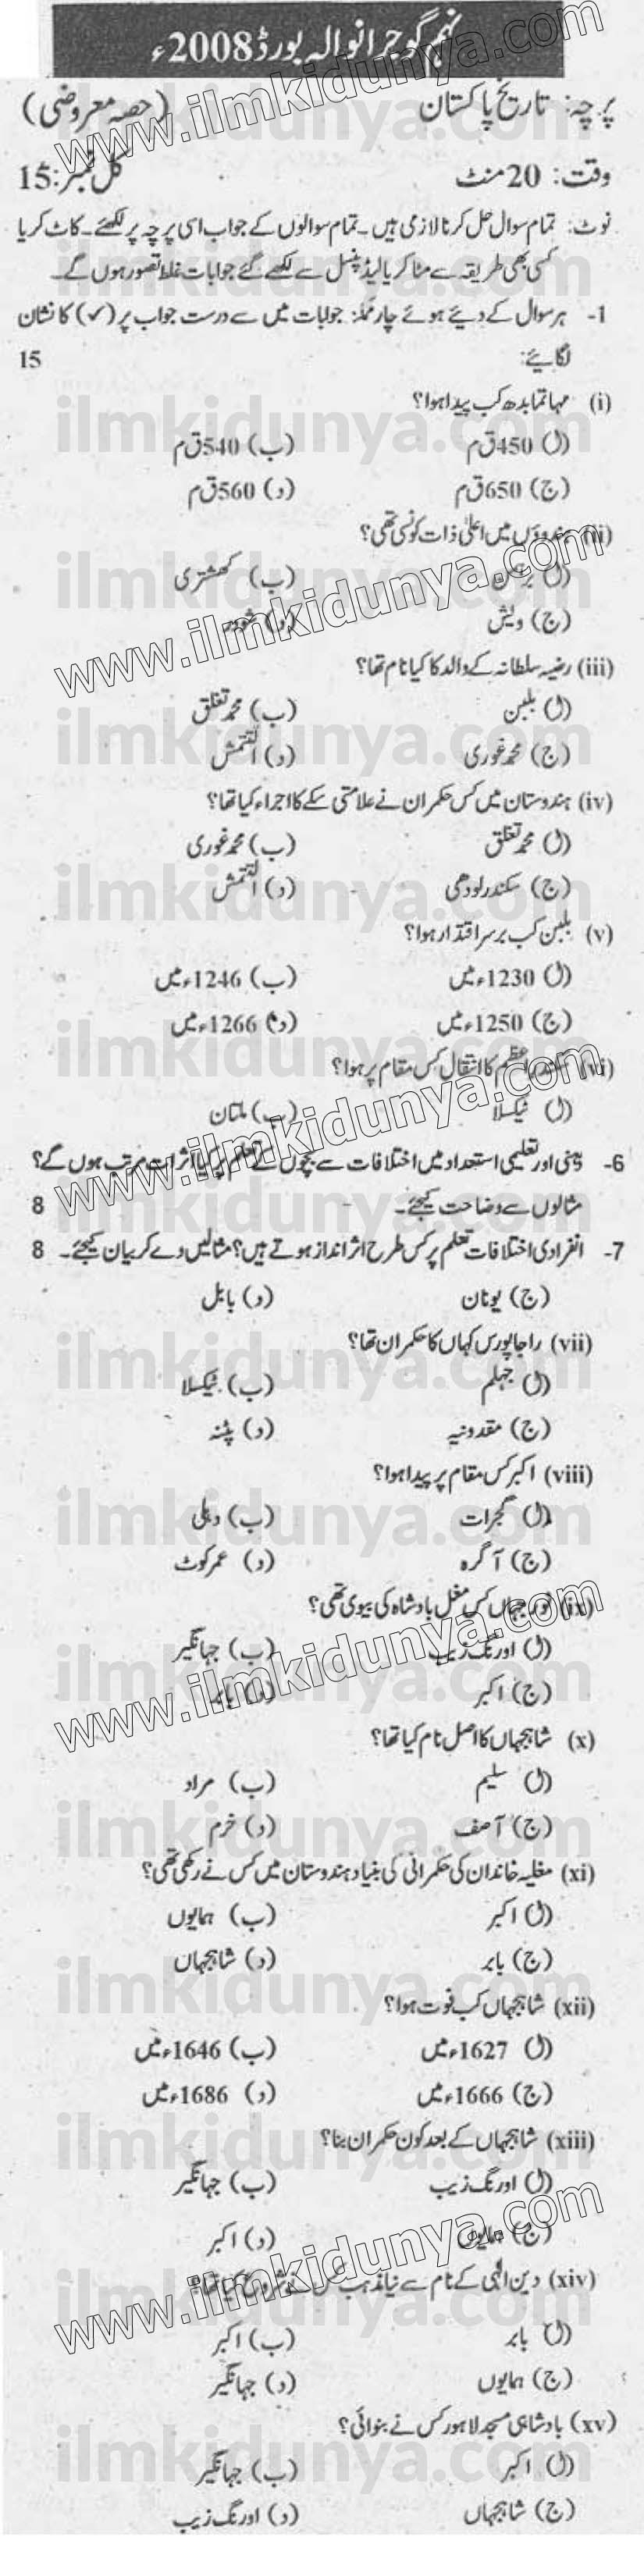 نہم گوجرانوالہ بورڈ 2008ء
پرچہ: تاریخ پاکستان (حصہ معروضی)
وقت: 20 منٹ کل نمبر: 15
نوٹ: تمام سوال حل کرنا لازمی ہیں۔ تمام سوالوں کے جواب اسی پرچہ پر لکھئے۔ کاٹ کر یا
کسی بھی طریقہ سے مٹا کر یا لیڈ پنسل سے لکھے گئے جوابات غلط تصور ہوں گے۔
1- ہر سوال کے دیئے ہوئے چار ممکنہ جوابات میں سے درست جواب پر (✓) کا نشان
لگائیے: 15
(i) مہاتما بدھ کب پیدا ہوا؟
(ا) 450 ق م (ب) 540 ق م
(ج) 650 ق م (د) 560 ق م
(ii) ہندوؤں میں اعلیٰ ذات کونسی تھی؟
(ا) برہمن (ب) کھشتری
(ج) ویش (د) شودر
(iii) رضیہ سلطانہ کے والد کا کیا نام تھا؟
(ا) بلبن (ب) محمد تغلق
(ج) محمد غوری (د) التتمش
(iv) ہندوستان میں کس حکمران نے علامتی سکے کا اجراء کیا تھا؟
(ا) محمد تغلق (ب) محمد غوری
(ج) سکندر لودھی (د) التتمش
(v) بلبن کب برسر اقتدار ہوا؟
(ا) 1230ء میں (ب) 1246ء میں
(ج) 1250ء میں (د) 1266ء میں
(vi) سکندر اعظم کا انتقال کس مقام پر ہوا؟
(ا) ٹیکسلا (ب) ملتان
6- ذہنی اور تعلیمی استعداد میں اختلافات سے بچوں کے تعلم پر کیا اثرات مرتب ہوں گے؟
مثالوں سے وضاحت کیجئے۔ 8
7- انفرادی اختلافات تعلم پر کس طرح اثر انداز ہوتے ہیں؟ مثالیں دے کر بیان کیجئے۔ 8
(ج) یونان (د) بابل
(vii) راجا پورس کہاں کا حکمران تھا؟
(ا) جہلم (ب) ٹیکسلا
(ج) مقدونیہ (د) پٹنہ
(viii) اکبر کس مقام پر پیدا ہوا؟
(ا) گجرات (ب) دہلی
(ج) آگرہ (د) عمر کوٹ
(ix) نور جہاں کس مغل بادشاہ کی بیوی تھی؟
(ا) اورنگ زیب (ب) جہانگیر
(ج) اکبر (د) بابر
(x) شاہجہاں کا اصل نام کیا تھا؟
(ا) سلیم (ب) مراد
(ج) آصف (د) خرم
(xi) مغلیہ خاندان کی حکمرانی کی بنیاد ہندوستان میں کس نے رکھی تھی؟
(ا) اکبر (ب) ہمایوں
(ج) بابر (د) شاہجہاں
(xii) شاہجہاں کب فوت ہوا؟
(ا) 1627ء میں (ب) 1646ء میں
(ج) 1666ء میں (د) 1686ء میں
(xiii) شاہجہاں کے بعد کون حکمران بنا؟
(ا) اورنگ زیب (ب) جہانگیر
(ج) ہمایوں (د) اکبر
(xiv) دین الٰہی کے نام سے نیا مذہب کس نے شروع کیا تھا؟
(ا) بابر (ب) اکبر
(ج) ہمایوں (د) جہانگیر
(xv) بادشاہی مسجد لاہور کس نے بنوائی؟
(ا) اکبر (ب) جہانگیر
(ج) شاہجہاں (د) اورنگ زیب
www.ilmkidunya.com
ilmkidunya.com